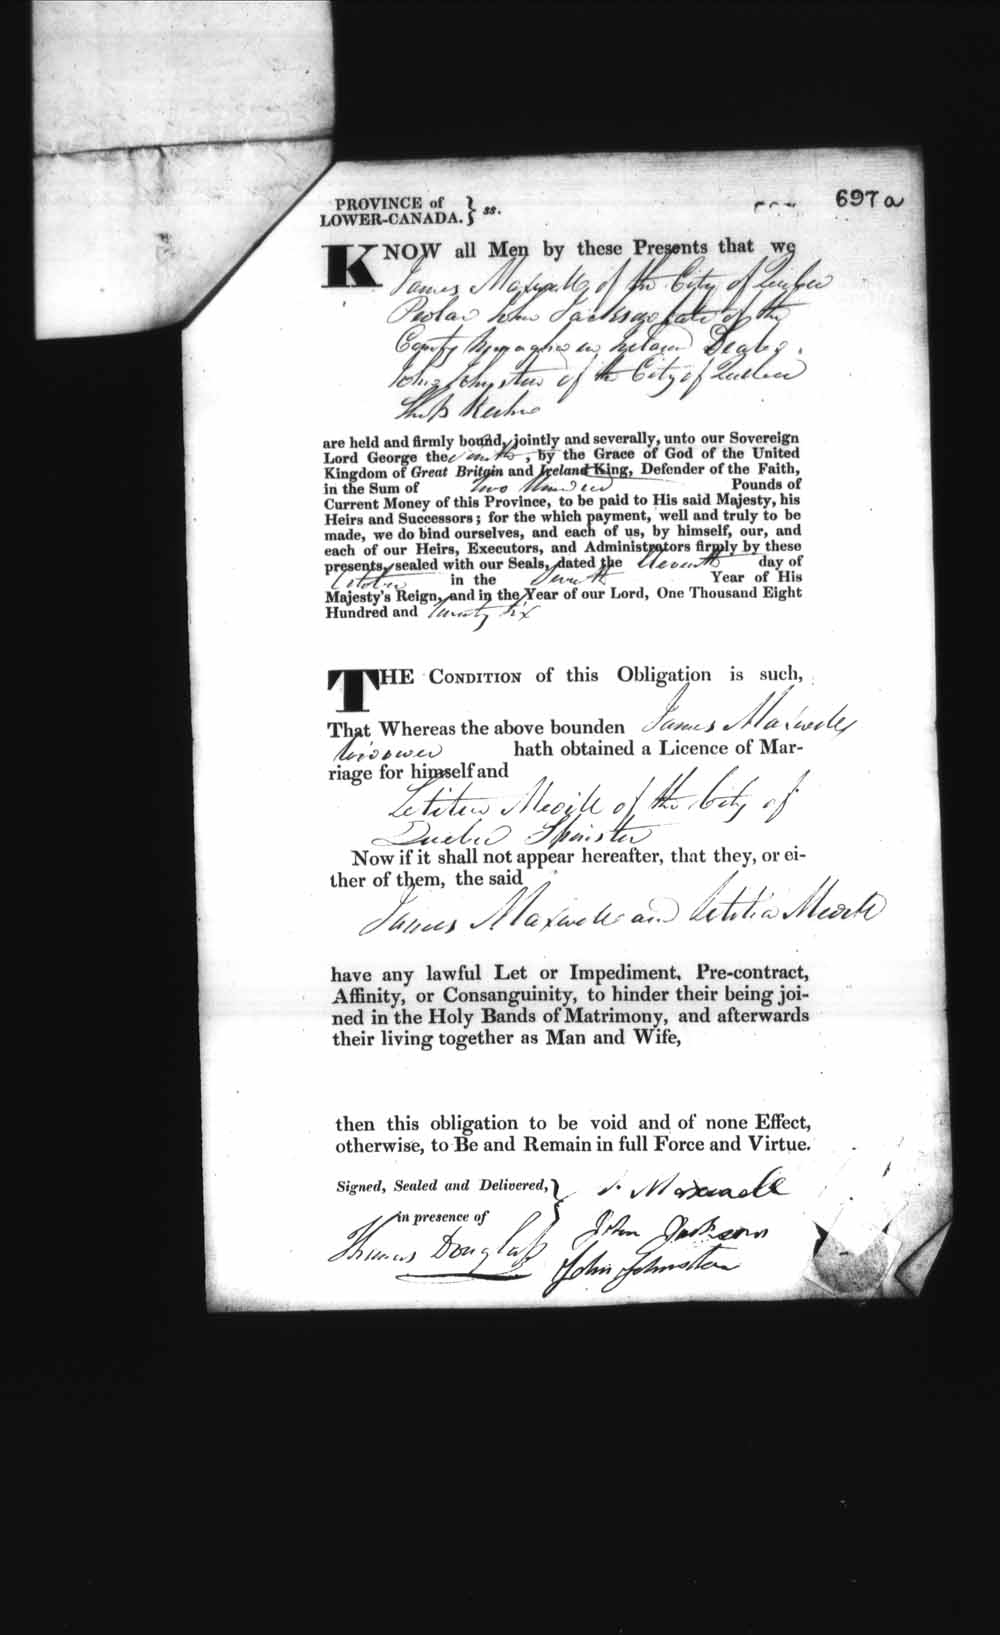 697a
PROVINCE of
LOWER-CANADA. } ss.
KNOW all Men by these Presents that we
James Maxwell of the City of Quebec
John Jackson late of the
County in Ireland
John Johnston of the City of Quebec
are held and firmly bound, jointly and severally, unto our Sovereign
Lord George the , by the Grace of God of the United
Kingdom of Great Britain and Ireland King, Defender of the Faith,
in the Sum of Two Hundred Pounds of
Current Money of this Province, to be paid to His said Majesty, his
Heirs and Successors; for the which payment, well and truly to be
made, we do bind ourselves, and each of us, by himself, our, and
each of our Heirs, Executors, and Administrators firmly by these
presents, sealed with our Seals, dated the Eleventh day of
October in the Seventh Year of His
Majesty's Reign, and in the Year of our Lord, One Thousand Eight
Hundred and Twenty Six
THE CONDITION of this Obligation is such,
That Whereas the above bounden James Maxwell
Widower hath obtained a Licence of Mar-
riage for himself and
Letitia of the City of
Quebec Spinster
Now if it shall not appear hereafter, that they, or ei-
ther of them, the said
James Maxwell and Letitia
have any lawful Let or Impediment, Pre-contract,
Affinity, or Consanguinity, to hinder their being joi-
ned in the Holy Bands of Matrimony, and afterwards
their living together as Man and Wife,
then this obligation to be void and of none Effect,
otherwise, to Be and Remain in full Force and Virtue.
Signed, Sealed and Delivered, } J. Maxwell
in presence of
John Jackson
Thomas Douglass
John Johnston